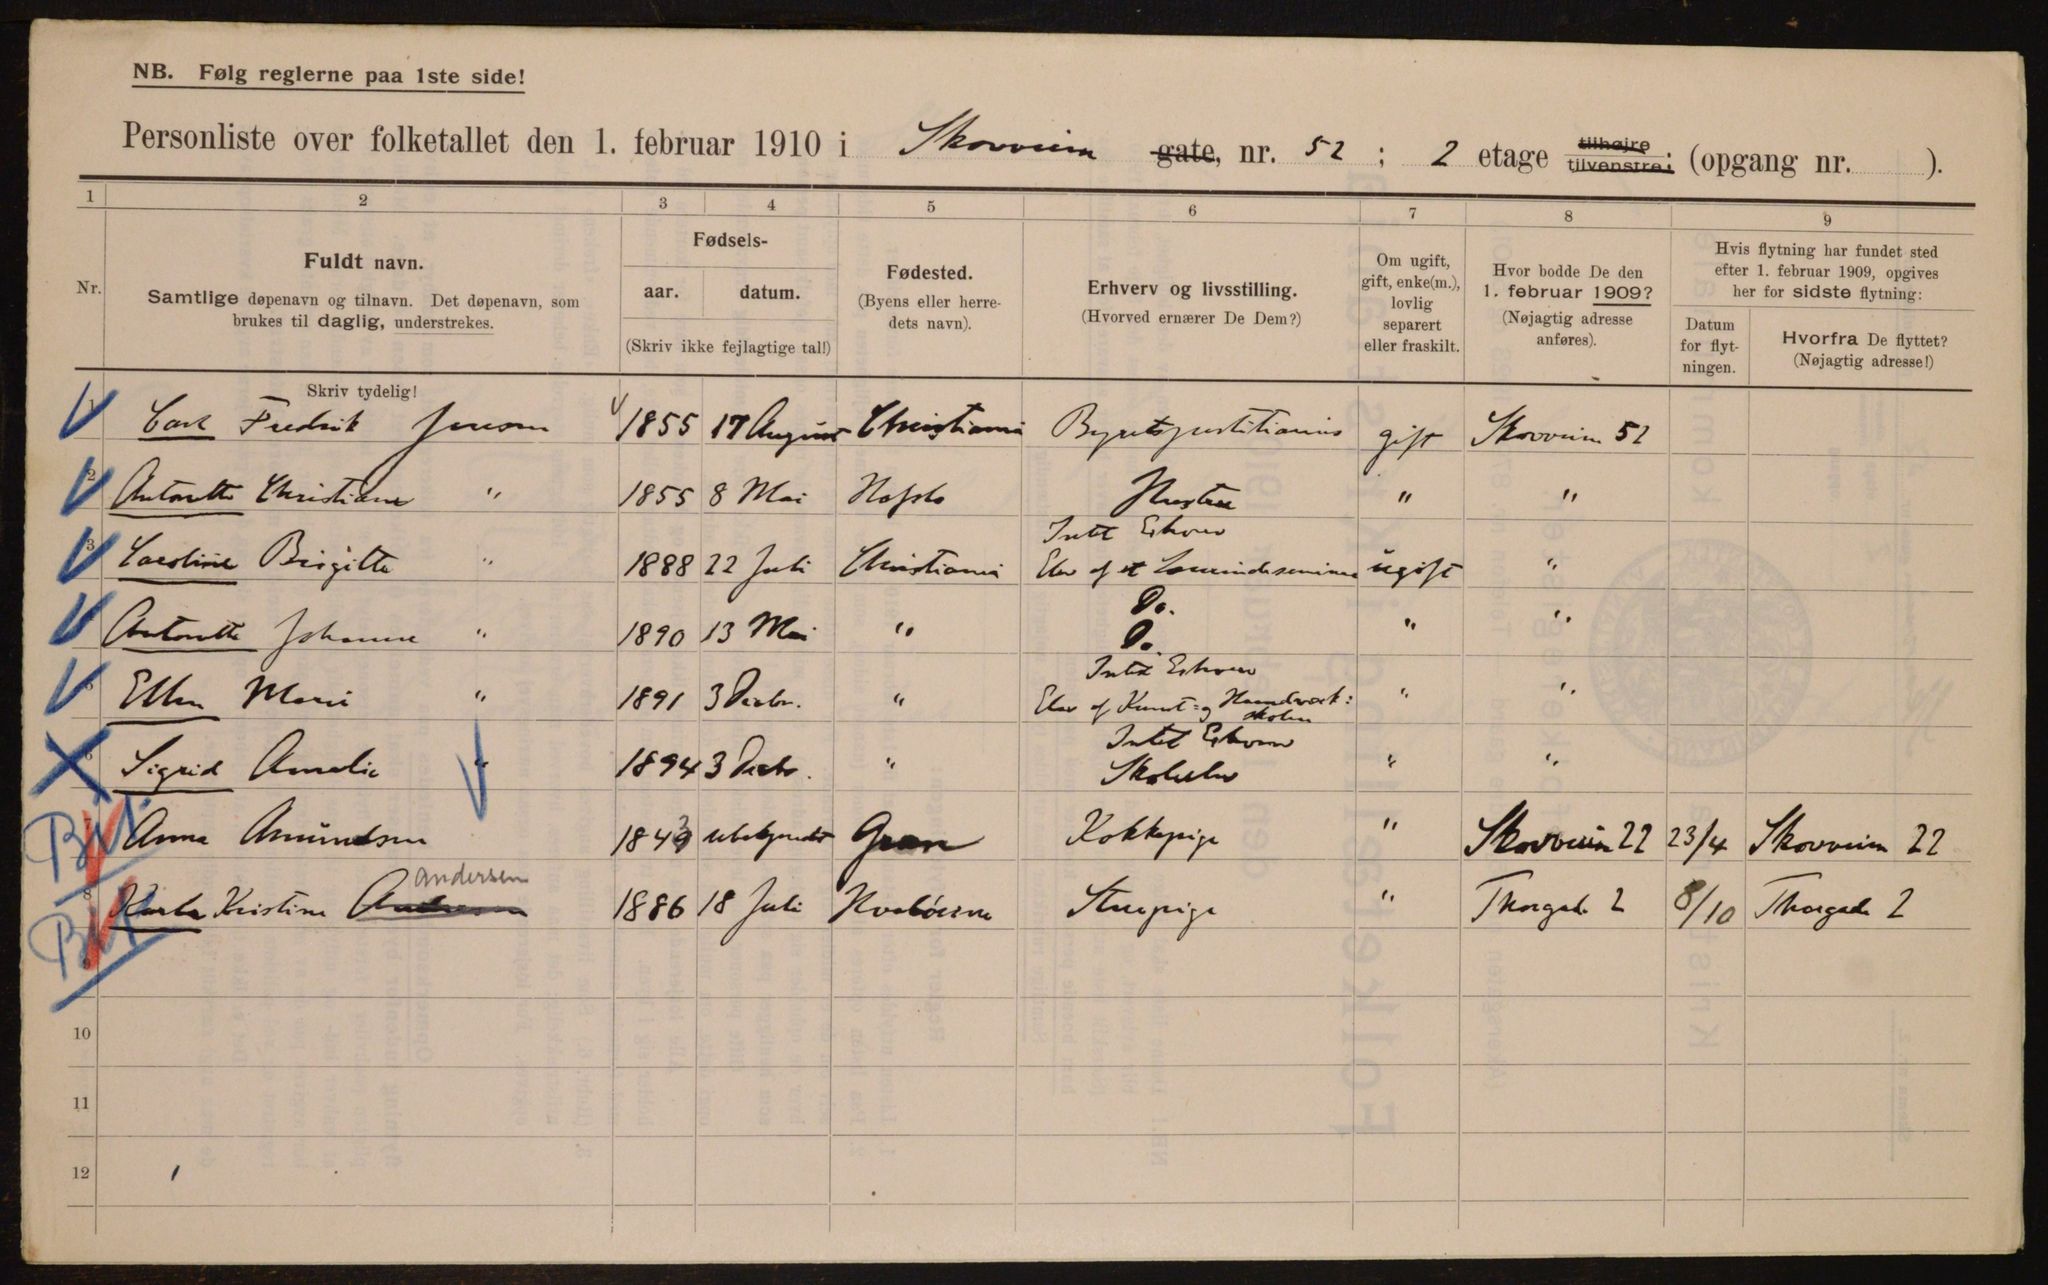 NB. Følg reglerne paa 1ste side!
Personliste over folketallet den 1. februar 1910 i Skovveien gate, nr. 52 ; 2 etage tilhøjre tilvenstre; (opgang nr. ).
1 2 3 4 5 6 7 8 9
Nr.
Fuldt navn.
Samtlige døpenavn og tilnavn. Det døpenavn, som
brukes til daglig, understrekes.
Skriv tydelig!
Fødsels-
aar. datum.
(Skriv ikke fejlagtige tal!)
Fødested.
(Byens eller herre-
dets navn).
Erhverv og livsstilling.
(Hvorved ernærer De Dem?)
Om ugift,
gift, enke(m.),
lovlig
separert
eller fraskilt.
Hvor bodde De den
1. februar 1909?
(Nøjagtig adresse
anføres).
Hvis flytning har fundet sted
efter 1. februar 1909, opgives
her for sidste flytning:
Datum
for flyt-
ningen.
Hvorfra De flyttet?
(Nøjagtig adresse!)
1 Carl Fredrik Jensen 1855 17 August Christiania Byretsjustitiarius gift Skovveien 52
2 Antonette Christiane " 1855 8 Mai Hafslo Hustru " "
Intet Erhverv
3 Caroline Birgitte " 1888 22 Juli Christiania Elev af et ugift "
Do.
4 Antonette Johanne " 1890 13 Mai " Do. " "
Intet Erhverv
5 Ellen Marie " 1891 3 Decbr. " Elev af Kunst- og Haandverk: " "
skolen
Intet Erhverv
6 Sigrid Amalie " 1894 3 Decbr. " Skoleelev " "
7 Anna Amundsen ubekjendt Gran Kokkepige " Skovveien 22 23/4 Skovveien 22
Andersen
8 Karla Kristine 1886 18 Juli Stuepige " Thorgade 2 8/10 Thorgade 2
9
10
11
12